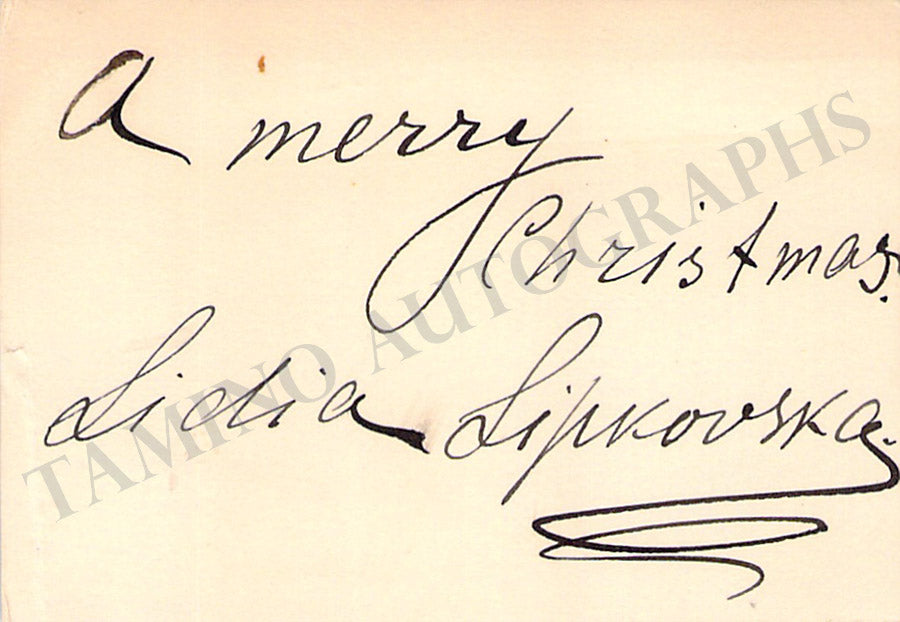 A merry
Christmas.
Lidia Lipkovska.
TAMINO AUTOGRAPHS